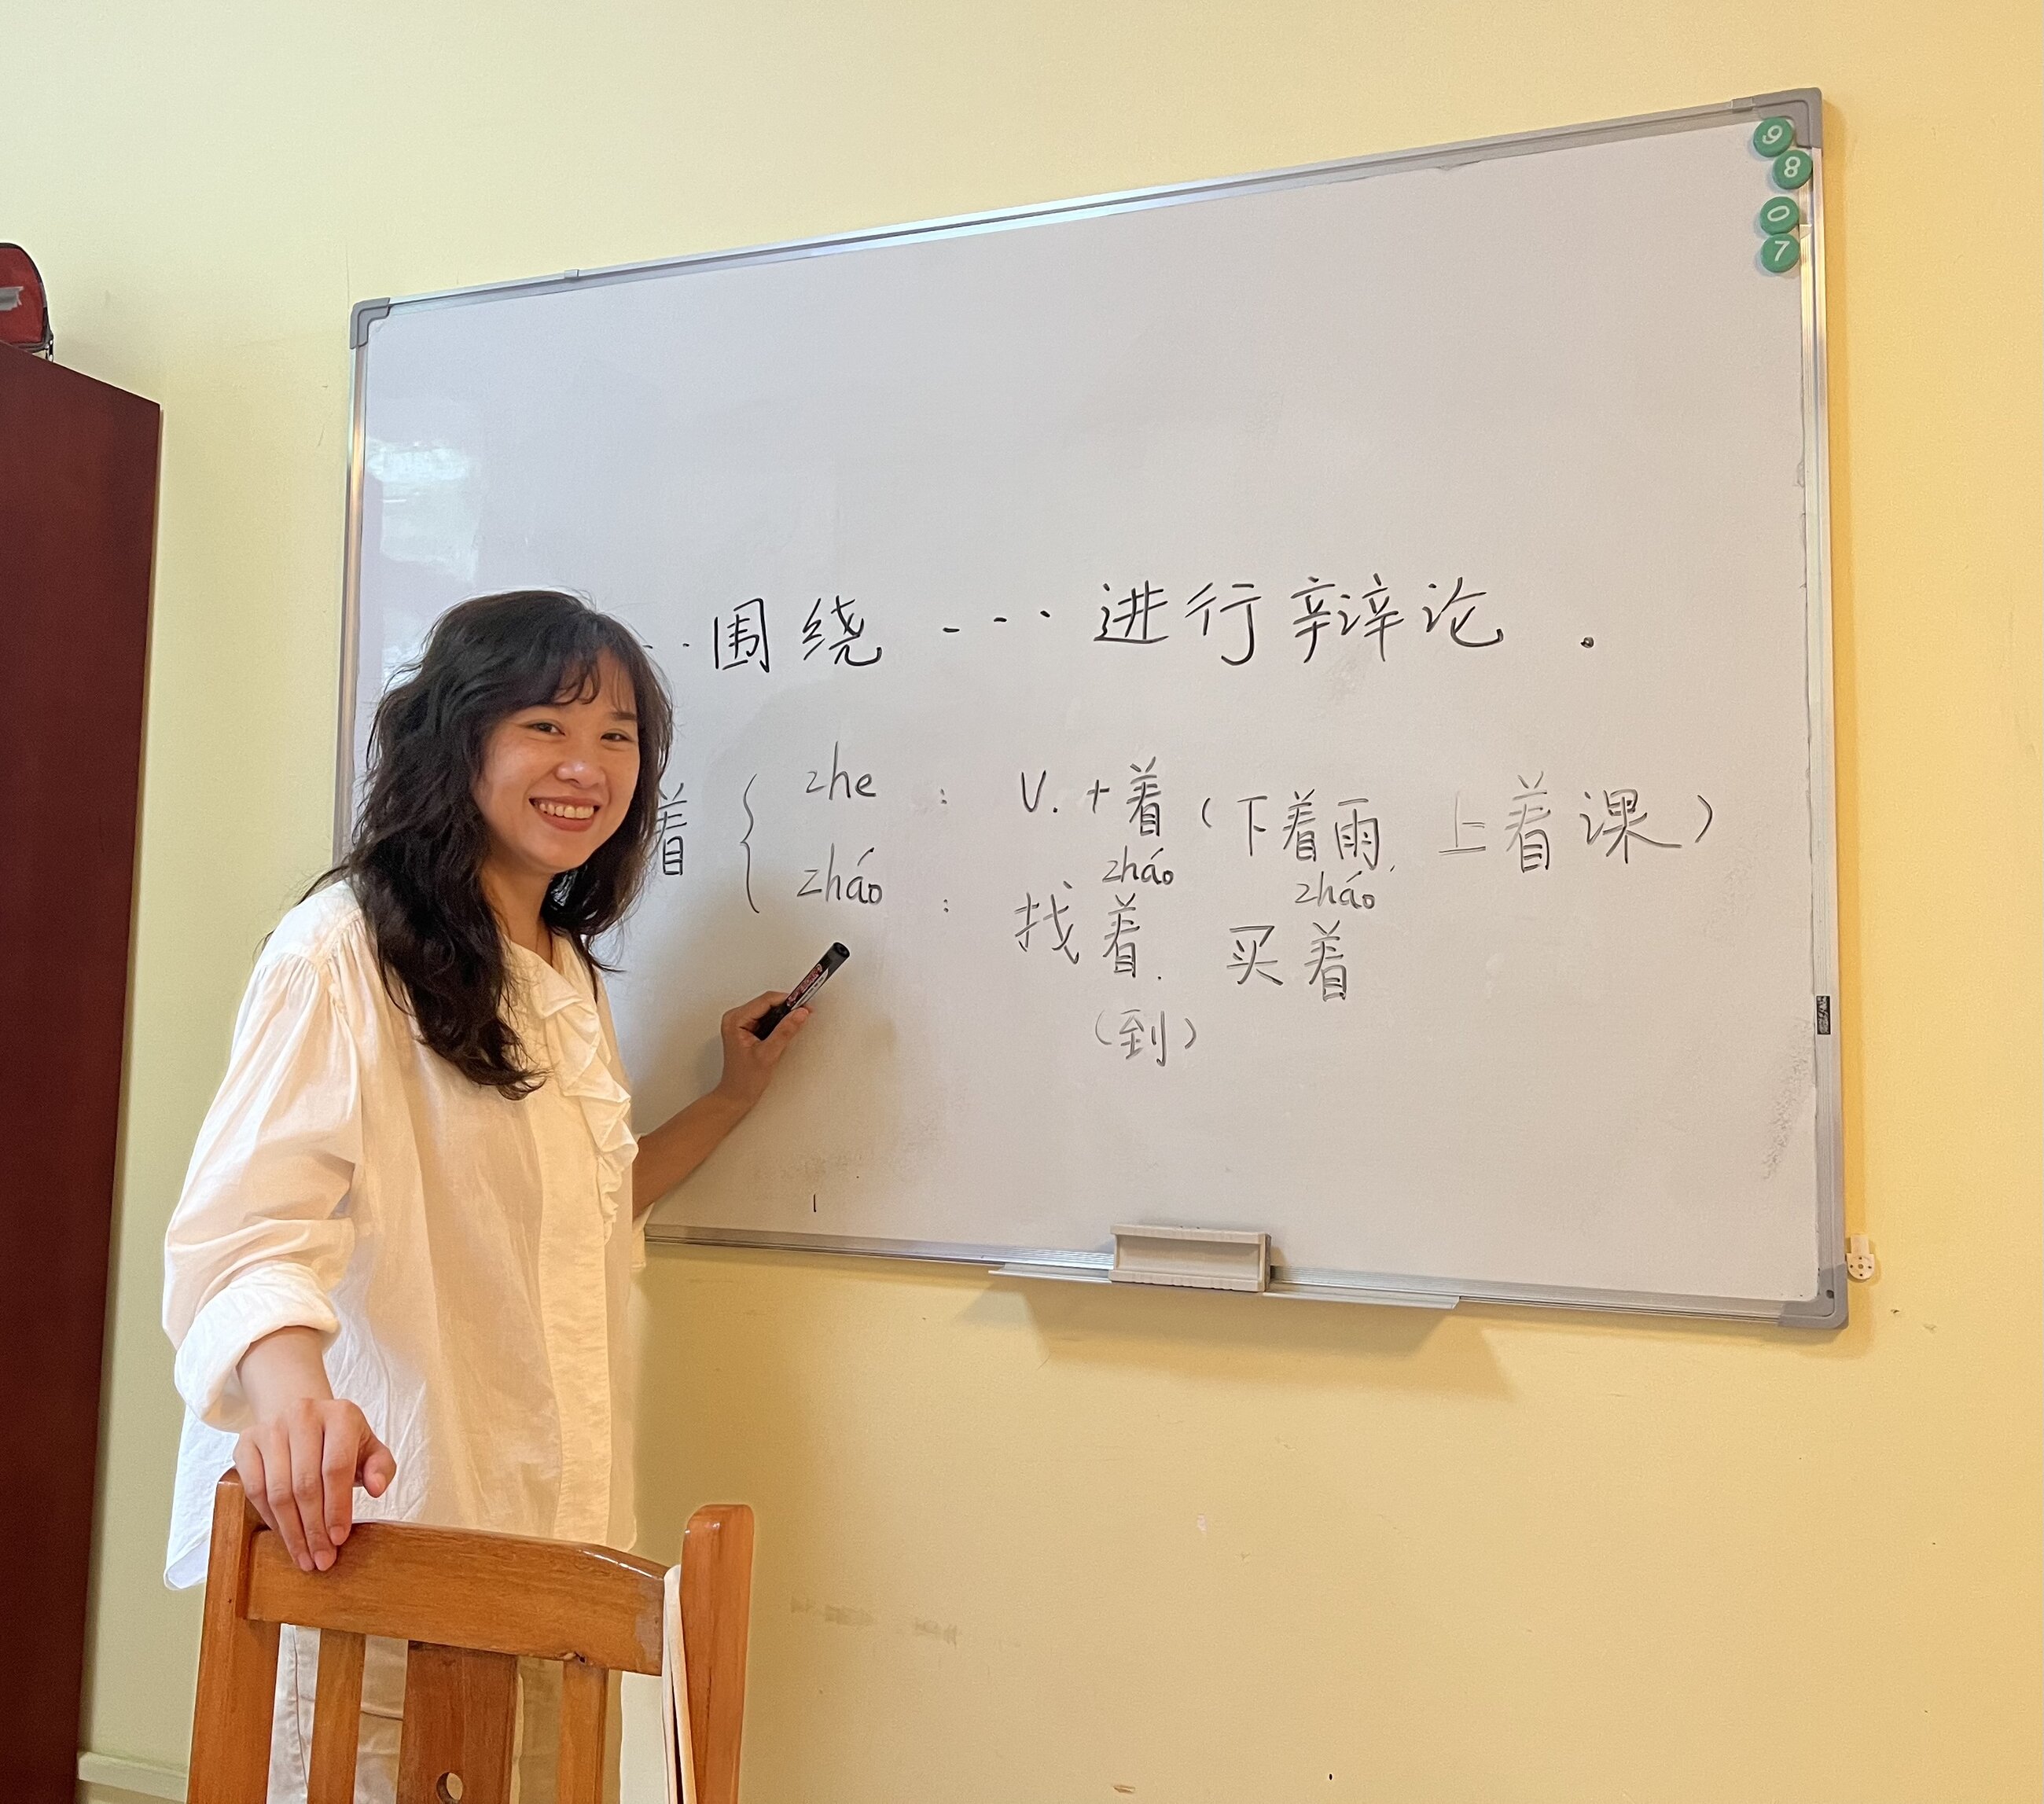 9
8
0
7
··围绕 ---··· 进行辩论.
着 { zhe : V. + 着 (下着雨, 上着课)
zháo zháo
zháo : 找着. 买着
(到)